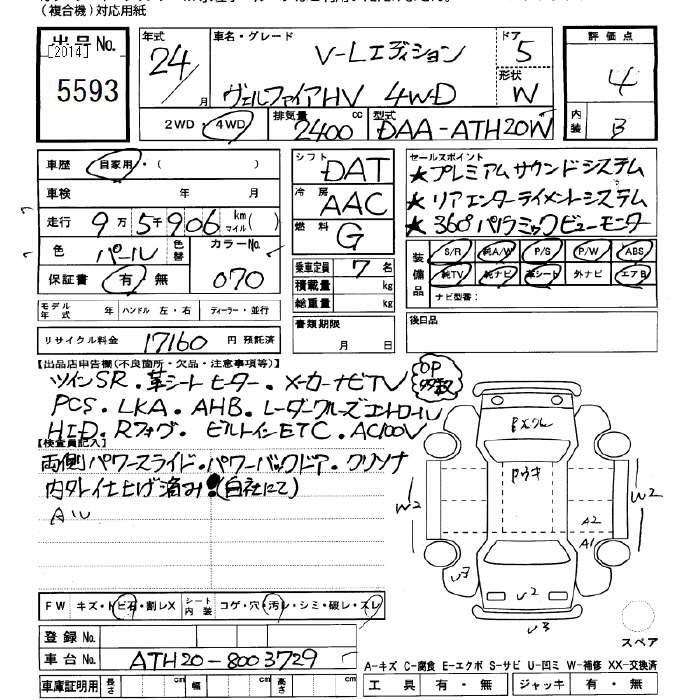 （複合機）対応用紙
出品No.
[2014]
5593
年式 24 月
車名・グレード V-Lエディション
ヴェルファイアHV 4WD
ドア 5
形状 W
評価点 4
内装 B
2WD・4WD 排気量 2400 cc 型式 DAA-ATH20W
車歴 自家用・（ ）
車検 年 月
走行 9万5千906 km マイル（ ）
色 パール 色替 カラーNo. 070
保証書 有・無
モデル年式 ハンドル 左・右 ディーラー・並行
リサイクル料金 17160 円 預託済
シフト DAT
冷房 AAC
燃料 G
乗車定員 7 名
積載量 kg
総重量 kg
書類期限 月 日
セールスポイント
★プレミアムサウンドシステム
★リアエンターテイメントシステム
★360°パノラミックビューモニター
装備品 S/R 純A/W P/S P/W ABS
純TV 純ナビ 革シート 外ナビ エアB
ナビ型番：
後日品
【出品店申告欄（不良箇所・欠品・注意事項等）】
ツインSR・革シートヒーター・メーカーナビTV
OP 多数
PCS・LKA・AHB・レーダークルーズコントロール
HID・Rフォグ・ビルトインETC・AC100V
【検査員記入】
両側パワースライド・パワーバックドア・クリソナ
内外仕上げ済み!（自社にて）
W2
W2
A2
A1
U3
U2
U3
FW キズ・トビ石・割レX シート内装 コゲ・穴・汚レ・シミ・破レ・スレ
登録No.
車台No. ATH20-8003729
車庫証明用 長さ cm 幅 cm 高さ cm
スペア
A-キズ C-腐食 E-エクボ S-サビ U-凹ミ W-補修 XX-交換済
工具 有・無 ジャッキ 有・無